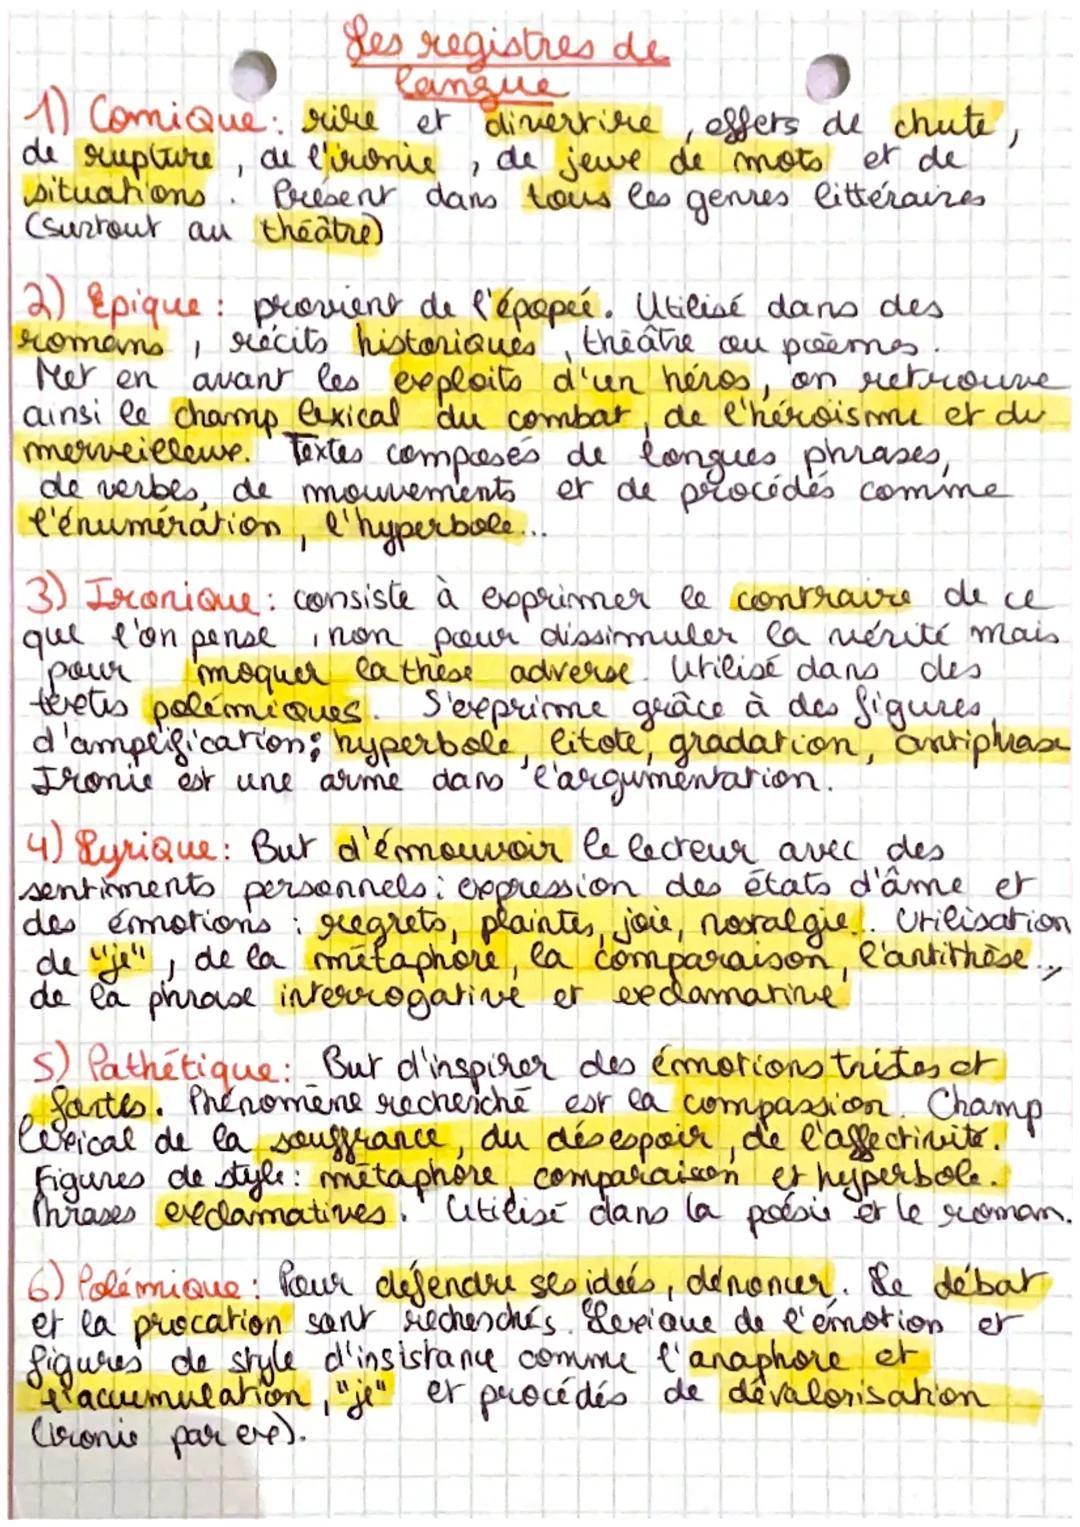 Les registres de
langue
1) Comique: rire et divertire, effets de chute,
de rupture, de l'ironie, de jeux de mots et de
situations. Présent dans tous les genres littéraires
(surtout au théâtre)
2) Epique: provient de l'épopeé. Utilisé dans des
romans, récits historiques, théâtre ou poèmes.
Met en avant les exploits d'un héros, on retrouve
ainsi le champ lexical du combat, de l'héroïsme et du
merveilleux. Textes composés de longues phrases,
de verbes, de mouvements et de procédés comme
l'énumération, l'hyperbole...
3) Ironique: consiste à exprimer le contraire de ce
que l'on pense, non pour dissimuler la vérité mais
pour moquer la thèse adverse. Utilisé dans des
textes polémiques. S'exprime grâce à des figures
d'amplification: hyperbole, litote, gradation, antiphrase
Ironie est une arme dans l'argumentation.
4) Lyrique: But d'émouvoir le lecteur avec des
sentiments personnels: expression des états d'âme et
des émotions: regrets, plaintes, joie, nostalgie... Utilisation
de "je", de la métaphore, la comparaison, l'antithèse...,
de la phrase interrogative et exclamative
5) Pathétique: But d'inspirer des émotions tristes et
fortes. Phénomène recherché est la compassion. Champ
lexical de la souffrance, du désespoir, de l'affectivité.
Figures de style: métaphore, comparaison et hyperbole.
Phrases exclamatives. Utilisé dans la poésie et le roman.
6) Polémique: Pour défendre ses ideés, dénoncer. Le débat
et la procation sont recherchés. Lexique de l'émotion et
figures de style d'insistance comme l'anaphore et
l'accumulation, "je" et procédés de dévalorisation
(ironie par ex).